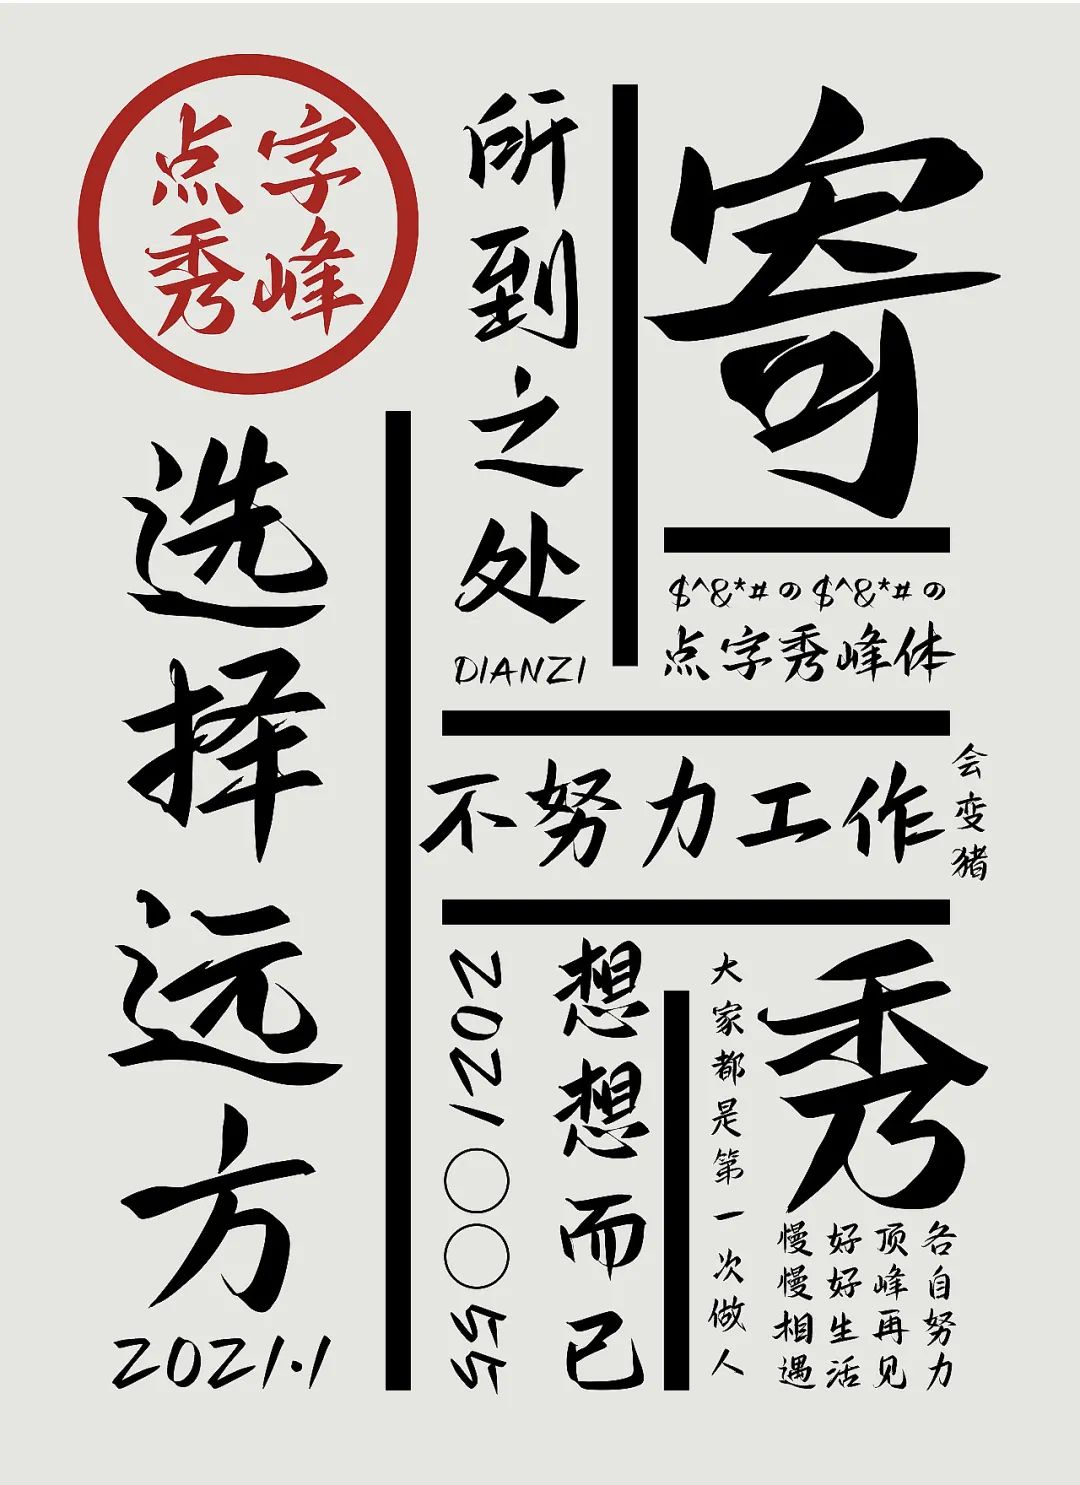 点字
秀峰
所到之处
DIANZI
寄
$^&*#の$^&*#の
点字秀峰体
选择远方
2021.1
不努力工作
会变猪
2021○○55
想想而已
大家都是第一次做人
秀
各自努力
顶峰再见
好好生活
慢慢相遇